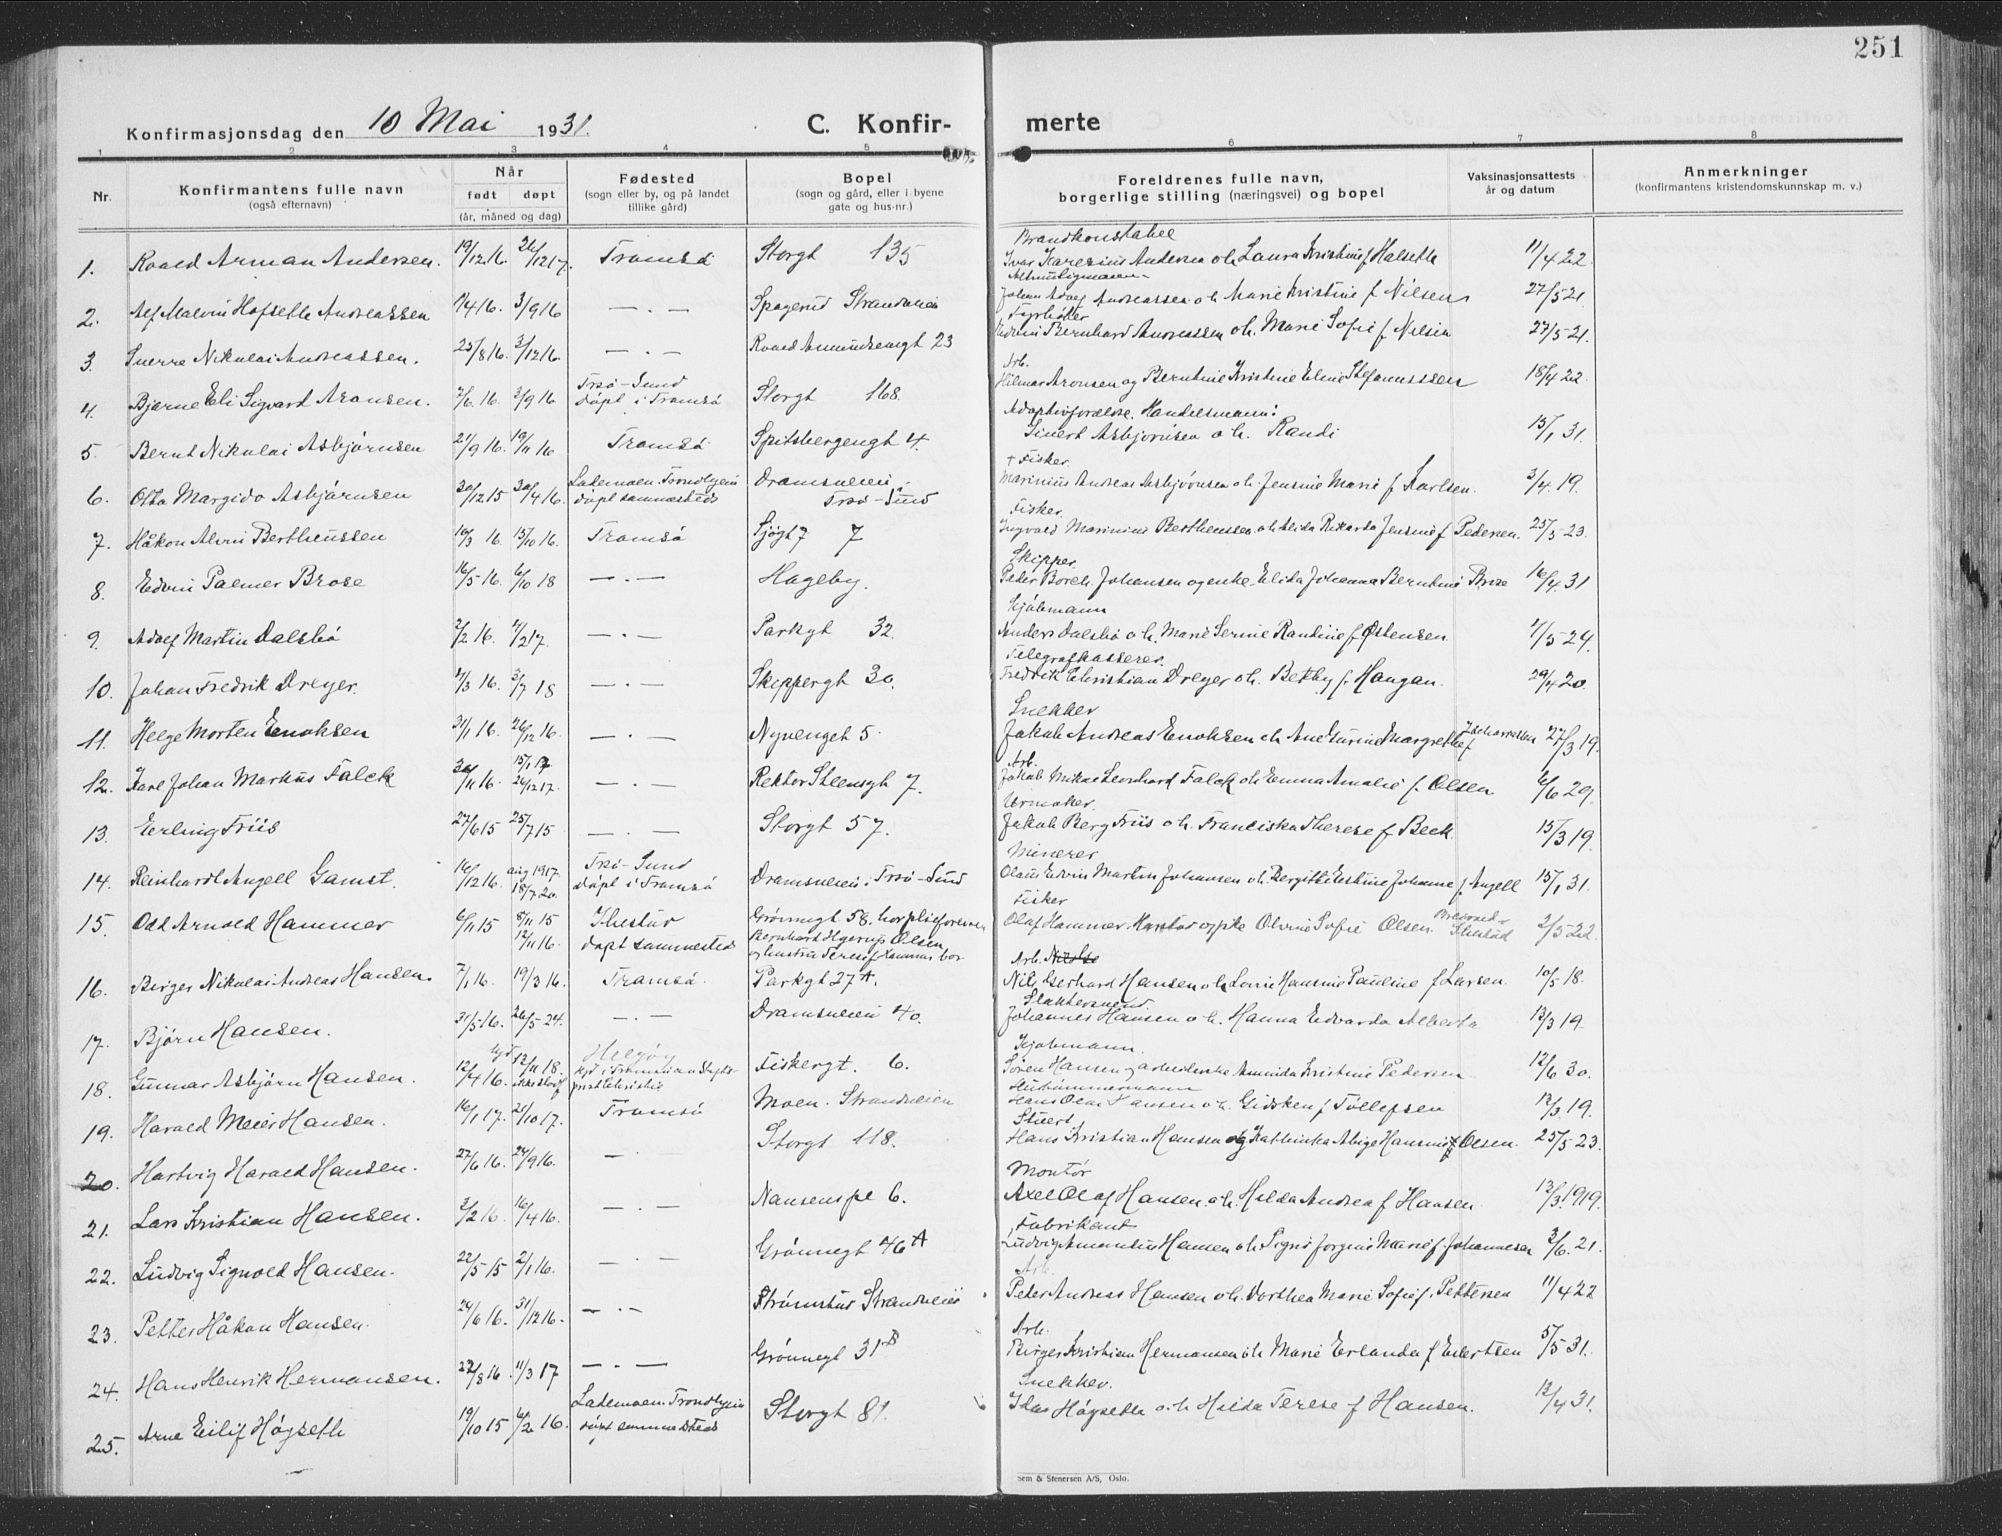 251
Konfirmasjonsdag den 10 Mai 1931.
C. Konfirmerte
1 2 3 4 5 6 7 8
Nr.
Konfirmantens fulle navn
(også efternavn)
Når
født døpt
(år, måned og dag)
Fødested
(sogn eller by, og på landet
tillike gård)
Bopel
(sogn og gård, eller i byene
gate og hus-nr.)
Foreldrenes fulle navn,
borgerlige stilling (næringsvei) og bopel
Vaksinasjonsattests
år og datum
Anmerkninger
(konfirmantens kristendomskunnskap m. v.)
Brandkonstabel
1. Roald Arman Andersen. 19/12 16. 26/12 17. Tromsø Storgt 135 Ivar Karelius Andersen o h. Laura Kristine f Halseth 11/4 22.
2. Alf Malvin Hofseth Andreassen 1/4 16. 3/9 16 — . — Strandveien Johan Adolf Andreassen o h. Marie Kristine f. Nilsen 27/5 21.
Fyrbøter
3. Sverre Nikolai Andreassen. 25/8 16. 3/12 16. — . — Roald Amundsengt 23 Edvin Bernhard Andreassen o h. Marie Sofie f. Nilsen 27/5 21.
Arb.
4. Bjarne Eli Sigvard Aronsen. 7/6 16. 3/9 16 Tsø-Sund døpt i Tromsø Storgt 168. Hilmar Aronsen og Berntine Kristine Eline Stefanussen 18/4 22.
Adoptivforeldre. Handelsmann:
5. Bernt Nikolai Asbjørnsen 21/9 16. 19/11 16 Tromsø Spitsbergengt 4. Sivert Asbjørnsen o h. Randi 15/1 31.
+ Fisker.
6. Otto Margido Asbjørnsen 30/12 15 30/4 16. Lademoen. Trondhjem døpt sammesteds Dramsveien. Tsø-Sund Marinius Andreas Asbjørnsen o h. Jensine Marie f Karlsen. 3/4 19.
Fisker.
7. Håkon Alvin Bertheussen 10/3 16. 15/10 16. Tromsø Sjøgt 7 7 Ingvald Marinius Bertheussen o h. Alida Rikarda Jensine f Pedersen. 25/5 23.
Skipper.
8. Edvin Palmer Brose 16/5 16. 6/10 18 — . — Hageby. Peder Borch Johansen og enke Elida Johanna Berntine Brose 16/4 31
Kjøbmann
9. Adolf Martin Dalsbø 2/2 16. 4/2 17. — . — Parkgt 32. Anders Dalsbø o h. Marie Serine Randine f. Østensen 1/5 24.
Telegrafkasserer.
10. Johan Fredrik Dreyer. 4/3 16. 3/7 18 — . — Skippergt 30. Fredrik Christian Dreyer o h. Betzy f. Haugan. 29/4 20.
Snekker
11. Helge Morten Enoksen 31/1 16. 26/12 16. — . — Nyvenget 5. Jakob Andreas Enoksen o h Ane Gurine Margrethe f Zachariassen 27/3 19.
Arb.
12. Karl Johan Markus Falck 30/11 16. 15/1 17 26/12 17. — . — Rektor Steensgt 7. Jakob Mikal Leonhard Falck o h Emma Amalie f. Olsen 6/6 29.
Urmaker.
13. Erling Friis 27/6 15 25/7 15 — . — Storgt 57. Jakob Berg Friis o h. Franciska Therese f Beck 15/3 19.
Minerer
14. Reinhardt Angell Gamst. 16/12 16. aug 1917. 18/7 20. Tsø-Sund døpt i Tromsø Dramsveien. Tsø-Sund Olaus Edvin Martin Johansen o h. Bergitte Johanne f. Angell 15/1 31.
Fisker
15. Odd Arnold Hammer 6/11 15 8/11 15 12/11 16 Ibestad døpt sammesteds Grønnegt 58. hos pleieforeldre Bernhard Olsen Olaf Hammer. og pike Olvine Sofie Olsen. Ibestad 2/5 22.
Arb.
16. Birger Nikolai Andreas Hansen. 7/1 16. 19/3 16. Tromsø. Parkgt 27 A. Nils Gerhard Hansen o h Hansine Pauline f Larsen. 10/5 18.
Slaktersvend
17. Bjørn Hansen. 31/5 16. 26/5 24. — . — Dramsveien 40. Johannes Hansen o h. Hanna Edvarda Alberta 13/3 19.
Kjøbmann.
18. Gunnar Asbjørn Hansen. 12/4 16. 12/11 18. Helgøy Fiskergt. 6. Søren Hansen Kristine Pedersen 12/6 30.
Hushummermann
19. Harald Meier Hansen. 16/1 17. 21/10 17. Tromsø Moen. Strandveien Hans Olai Hansen o h. Gidsken f Tollefsen 13/3 19.
Stuert
20. Hartvig Harald Hansen. 27/6 16. 24/9 16. — . — Storgt 118. Hans Kristian Hansen og Kathinka Abige Hansine f Olsen. 25/5 23.
Montør
21. Lars Kristian Hansen. 2/2 16. 16/4 16. — . — Nansenspl 6. Axel Olaf Hansen. o h. Hilda Andrea f Hansen. 13/3 1919.
Fabrikant
22. Ludvig Sigvold Hansen. 22/5 15 2/1 16. — . — Grønnegt 46 A Ludvig Amandus Hansen o h. Signe Jørgine Marie f. Johannesen 2/6. 21.
Arb.
23. Petter Håkon Hansen. 24/6 16. 31/12 16. — . — Strandveien Peter Andreas Hansen o h. Dorthea Marie Sofie f. Pettersen 11/4 22
Arb.
24. Hans Henrik Hermansen. 22/8 16. 11/3 17 — . — Grønnegt 31 B Birger Kristian Hermansen o h Marie Erlanda f Eilertsen 5/5 31.
Snekker.
25. Arne Eilif Høyseth 19/10 15 6/2 16. Lademoen. Trondhjem døpt sammesteds Storgt 81. Høyseth o h Hilda Terese f Hansen. 13/4 31.
Sem & Stenersen A/S, Oslo.